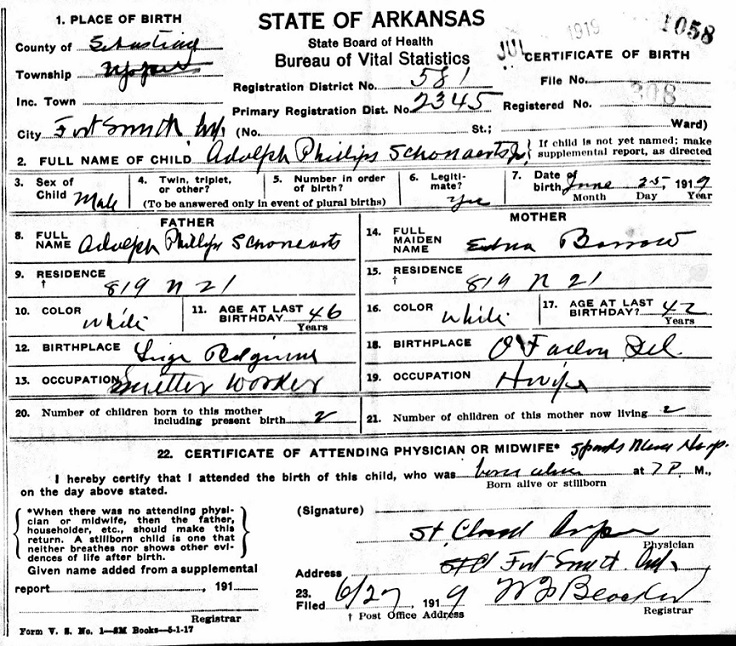 1. PLACE OF BIRTH
STATE OF ARKANSAS
State Board of Health
Bureau of Vital Statistics
JUL 1919
1058
CERTIFICATE OF BIRTH
County of Sebastian
Township
Inc. Town
City Fort Smith, Ark.
Registration District No. 581
Primary Registration Dist. No. 2345
File No.
Registered No. 308
(No. St.; Ward)
2. FULL NAME OF CHILD Adolph Phillips Schonaerts Jr.
{ If child is not yet named; make
supplemental report, as directed
3. Sex of Child Male
4. Twin, triplet, or other?
5. Number in order of birth?
(To be answered only in event of plural births)
6. Legitimate? Yes
7. Date of birth June 25, 1919
Month Day Year
FATHER
8. FULL NAME Adolph Phillips Schonaerts
9. RESIDENCE † 819 N 21
10. COLOR White
11. AGE AT LAST BIRTHDAY 46
Years
12. BIRTHPLACE
13. OCCUPATION Smelter Worker
MOTHER
14. FULL MAIDEN NAME Edna Barrow
15. RESIDENCE † 819 N 21
16. COLOR White
17. AGE AT LAST BIRTHDAY? 42
Years
18. BIRTHPLACE O'Fallon Ill.
19. OCCUPATION H wife
20. Number of children born to this mother
including present birth 2
21. Number of children of this mother now living 2
22. CERTIFICATE OF ATTENDING PHYSICIAN OR MIDWIFE*
I hereby certify that I attended the birth of this child, who was born alive at 7 P. M.,
Born alive or stillborn
on the day above stated.
{ *When there was no attending physi-
cian or midwife, then the father,
householder, etc., should make this
return. A stillborn child is one that
neither breathes nor shows other evi-
dences of life after birth. }
Given name added from a supplemental
report , 191
Registrar
(Signature) St. Cloud Cooper
Physician
Address Fort Smith Ark.
23. Filed 6/27 1919
† Post Office Address
Registrar
Form V. S. No. 1—5M Books—5-1-17